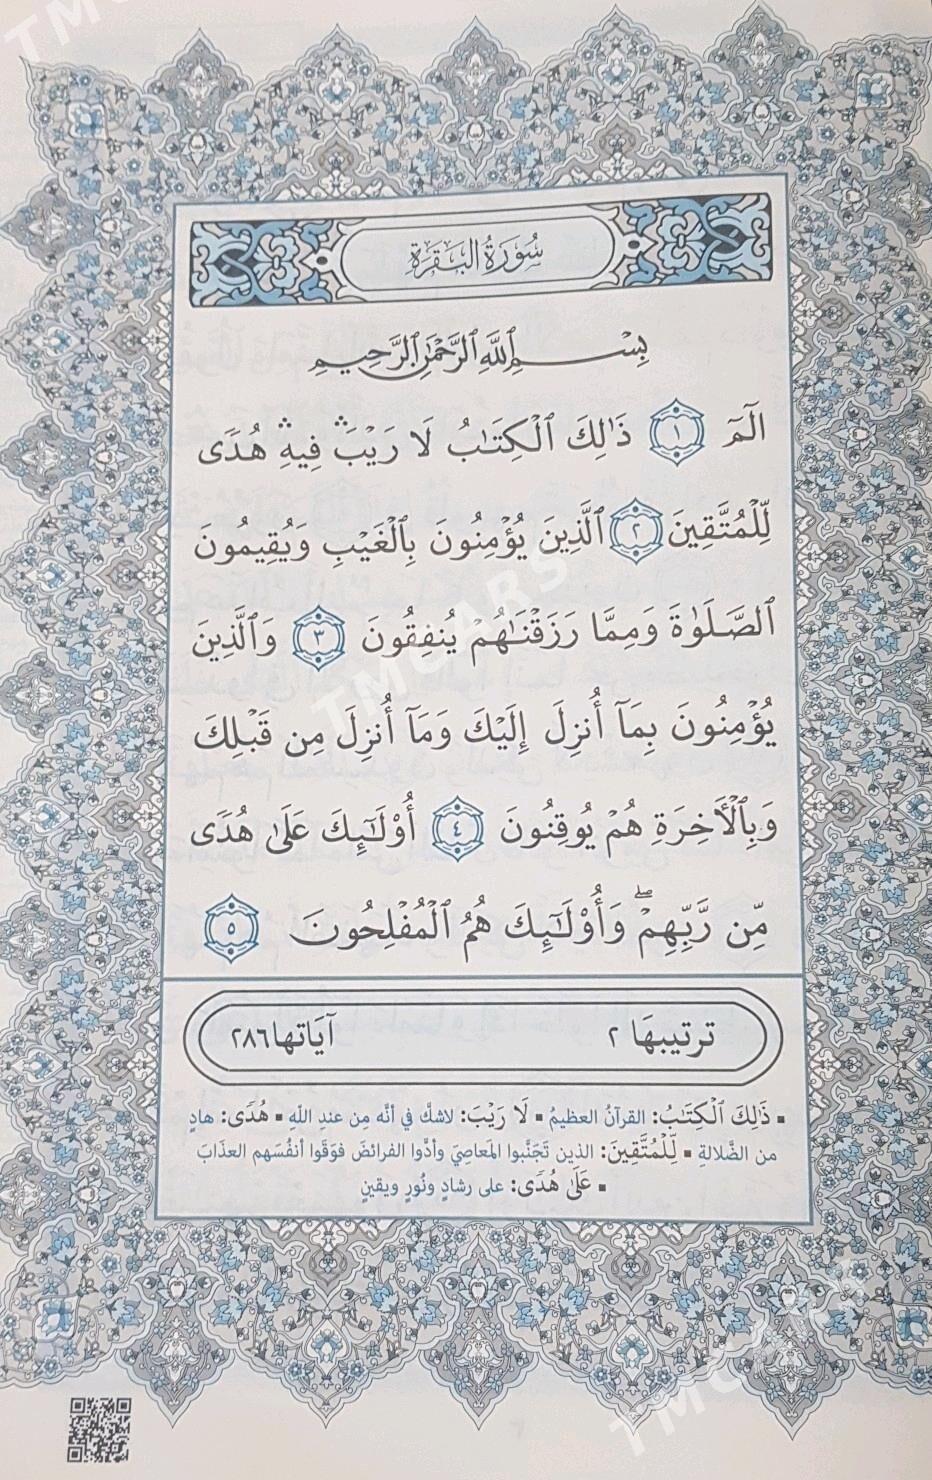 سُورَةُ البَقَرَةِ
بِسْمِ ٱللَّهِ ٱلرَّحْمَٰنِ ٱلرَّحِيمِ
الٓمٓ ١ ذَٰلِكَ ٱلْكِتَٰبُ لَا رَيْبَ ۛ فِيهِ ۛ هُدًى
لِّلْمُتَّقِينَ ٢ ٱلَّذِينَ يُؤْمِنُونَ بِٱلْغَيْبِ وَيُقِيمُونَ
ٱلصَّلَوٰةَ وَمِمَّا رَزَقْنَٰهُمْ يُنفِقُونَ ٣ وَٱلَّذِينَ
يُؤْمِنُونَ بِمَآ أُنزِلَ إِلَيْكَ وَمَآ أُنزِلَ مِن قَبْلِكَ
وَبِٱلْأَخِرَةِ هُمْ يُوقِنُونَ ٤ أُو۟لَٰٓئِكَ عَلَىٰ هُدًى
مِّن رَّبِّهِمْ ۖ وَأُو۟لَٰٓئِكَ هُمُ ٱلْمُفْلِحُونَ ٥
ترتيبها ٢ آياتها ٢٨٦
▪ ذَٰلِكَ ٱلْكِتَٰبُ: القرآنُ العظيمُ ▪ لَا رَيْبَ: لاشكَّ في أنَّه مِن عندِ اللّهِ ▪ هُدًى: هادٍ
من الضَّلالةِ ▪ لِّلْمُتَّقِينَ: الذين تَجَنَّبوا المَعاصِيَ وأدَّوا الفرائضَ فوَقَوا أنفُسَهم العذَابَ
▪ عَلَىٰ هُدًى: على رشادٍ ونُورٍ ويقينٍ
TMCARS